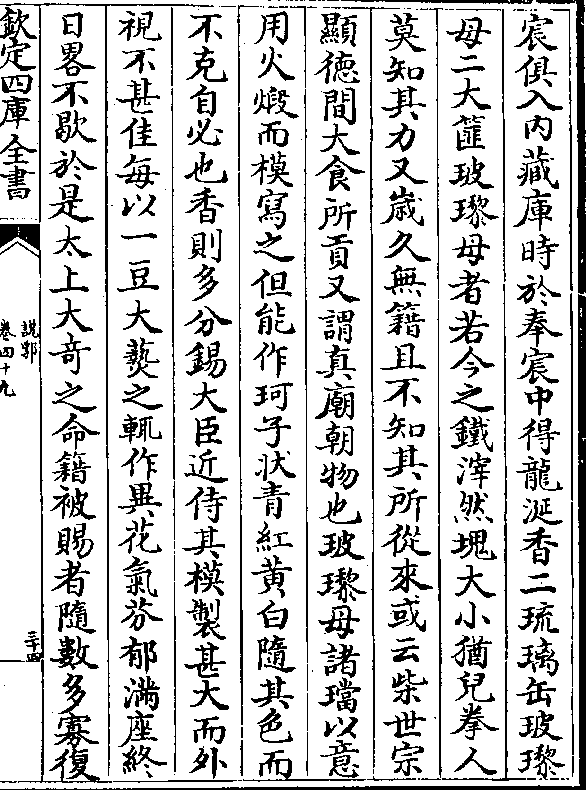 宸俱入内藏庫時於奉宸中得龍涎香二琉璃缶玻瓈
母二大篚玻瓈母者若今之鐵滓然塊大小猶兒拳人
莫知其方又嵗久無籍且不知其所從來或云柴世宗
顯徳間大食所貢又謂真廟朝物也玻瓈母諸璫以意
用火煅而模寫之但能作珂子狀青紅黄白隨其色而
不克自必也香則多分錫大臣近侍其模製甚大而外
視不甚佳每以一豆大爇之輒作異花氣芬郁滿座終
日畧不歇於是太上大竒之命籍被賜者隨數多寡復
欽定四庫全書
説郛
卷四十九
三十四